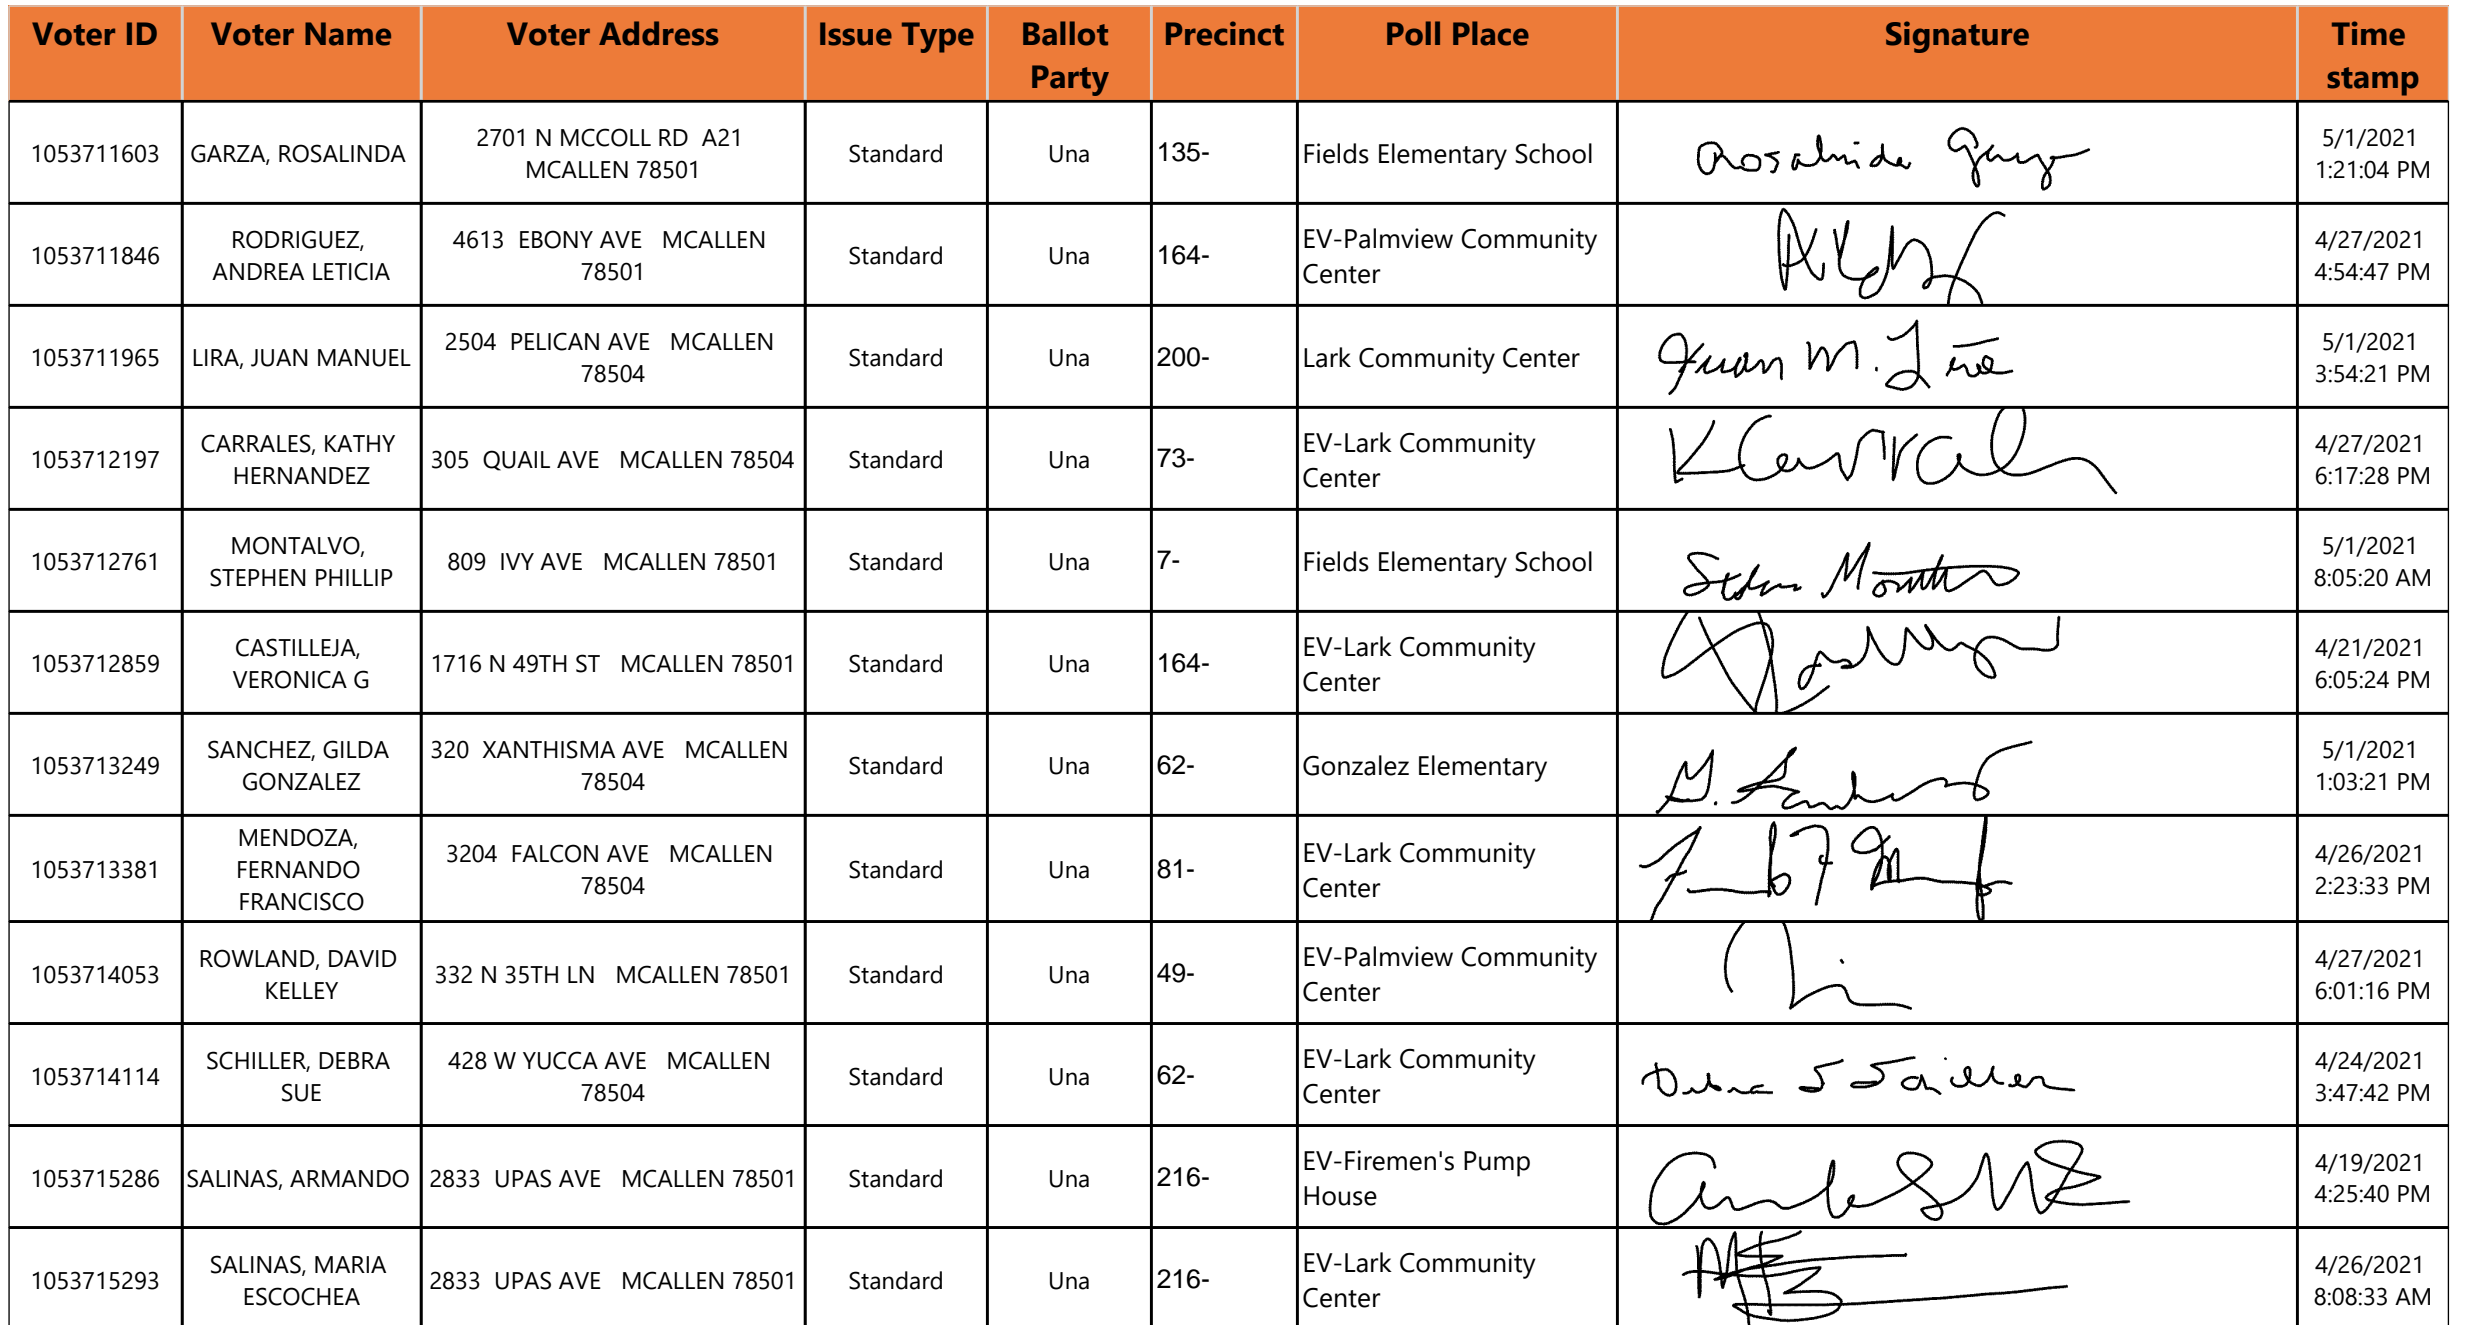 Voter ID Voter Name Voter Address Issue Type Ballot Party Precinct Poll Place Signature Time stamp
1053711603 GARZA, ROSALINDA 2701 N MCCOLL RD A21 MCALLEN 78501 Standard Una 135- Fields Elementary School Rosalinda Garza 5/1/2021 1:21:04 PM
1053711846 RODRIGUEZ, ANDREA LETICIA 4613 EBONY AVE MCALLEN 78501 Standard Una 164- EV-Palmview Community Center 4/27/2021 4:54:47 PM
1053711965 LIRA, JUAN MANUEL 2504 PELICAN AVE MCALLEN 78504 Standard Una 200- Lark Community Center Juan M. Lira 5/1/2021 3:54:21 PM
1053712197 CARRALES, KATHY HERNANDEZ 305 QUAIL AVE MCALLEN 78504 Standard Una 73- EV-Lark Community Center 4/27/2021 6:17:28 PM
1053712761 MONTALVO, STEPHEN PHILLIP 809 IVY AVE MCALLEN 78501 Standard Una 7- Fields Elementary School 5/1/2021 8:05:20 AM
1053712859 CASTILLEJA, VERONICA G 1716 N 49TH ST MCALLEN 78501 Standard Una 164- EV-Lark Community Center 4/21/2021 6:05:24 PM
1053713249 SANCHEZ, GILDA GONZALEZ 320 XANTHISMA AVE MCALLEN 78504 Standard Una 62- Gonzalez Elementary 5/1/2021 1:03:21 PM
1053713381 MENDOZA, FERNANDO FRANCISCO 3204 FALCON AVE MCALLEN 78504 Standard Una 81- EV-Lark Community Center 4/26/2021 2:23:33 PM
1053714053 ROWLAND, DAVID KELLEY 332 N 35TH LN MCALLEN 78501 Standard Una 49- EV-Palmview Community Center 4/27/2021 6:01:16 PM
1053714114 SCHILLER, DEBRA SUE 428 W YUCCA AVE MCALLEN 78504 Standard Una 62- EV-Lark Community Center Debra S Schiller 4/24/2021 3:47:42 PM
1053715286 SALINAS, ARMANDO 2833 UPAS AVE MCALLEN 78501 Standard Una 216- EV-Firemen's Pump House 4/19/2021 4:25:40 PM
1053715293 SALINAS, MARIA ESCOCHEA 2833 UPAS AVE MCALLEN 78501 Standard Una 216- EV-Lark Community Center 4/26/2021 8:08:33 AM